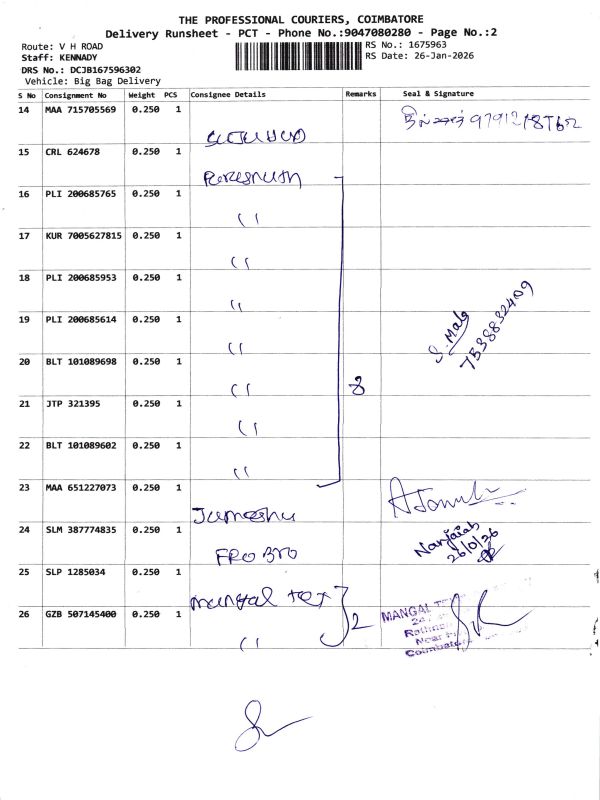 THE PROFESSIONAL COURIERS, COIMBATORE
Delivery Runsheet - PCT - Phone No.:9047080280 - Page No.:2
Route: V H ROAD
Staff: KENNADY
DRS No.: DCJB167596302
Vehicle: Big Bag Delivery
RS No.: 1675963
RS Date: 26-Jan-2026
S No Consignment No Weight PCS Consignee Details Remarks Seal & Signature
14 MAA 715705569 0.250 1
15 CRL 624678 0.250 1
16 PLI 200685765 0.250 1 ''
17 KUR 7005627815 0.250 1 ''
18 PLI 200685953 0.250 1 ''
19 PLI 200685614 0.250 1 ''
S. Mala
7538832409
20 BLT 101089698 0.250 1 '' 8
21 JTP 321395 0.250 1 ''
22 BLT 101089602 0.250 1 ''
23 MAA 651227073 0.250 1
24 SLM 387774835 0.250 1 FRO BRO
Nanjaiah
26/0/26
25 SLP 1285034 0.250 1 mangal tex 2
26 GZB 507145400 0.250 1 ''
MANGAL
Near
Coimbatore